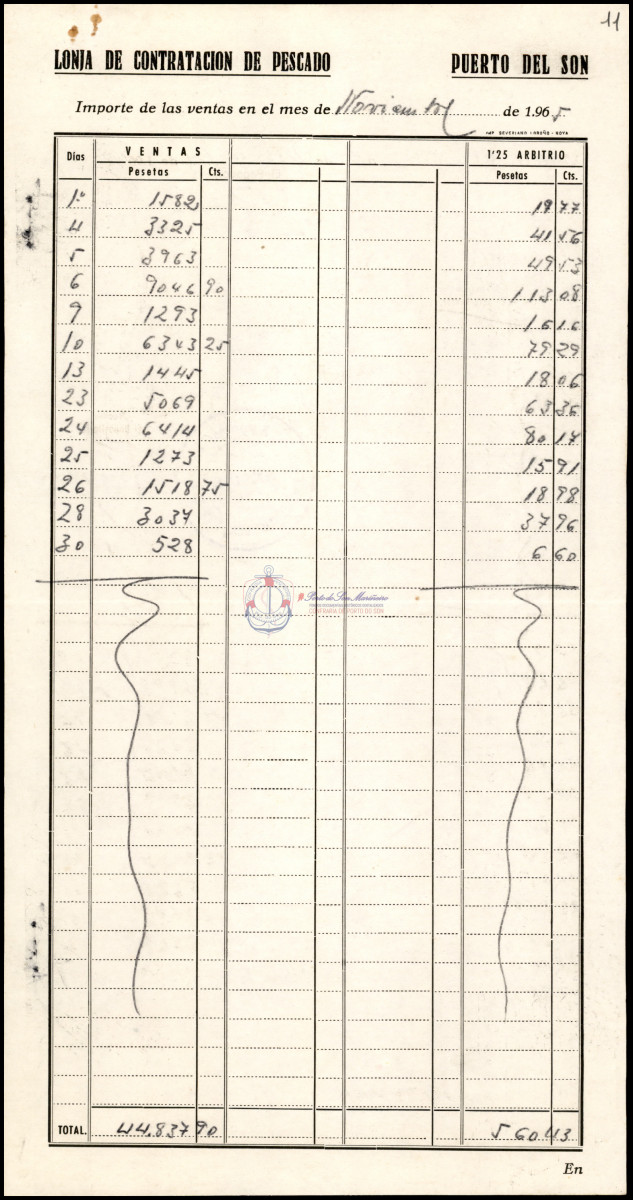 11
LONJA DE CONTRATACION DE PESCADO PUERTO DEL SON
Importe de las ventas en el mes de Noviembre de 1.965
IMP. SEVERIANO - NOYA
Dias VENTAS 1'25 ARBITRIO
Pesetas Cts. Pesetas Cts.
1.º 1582 19 77
4 3325 41 56
5 3963 49 53
6 9046 90 113 08
9 1293 16 16
10 6343 25 79 29
13 1445 18 06
23 5069 63 36
24 6414 80 17
25 1273 15 91
26 1518 75 18 98
28 3037 37 96
30 528 6 60
Porto do Son Mariñeiro
CONFRARÍA DE PORTO DO SON
TOTAL. 44.837 90 560 43
En